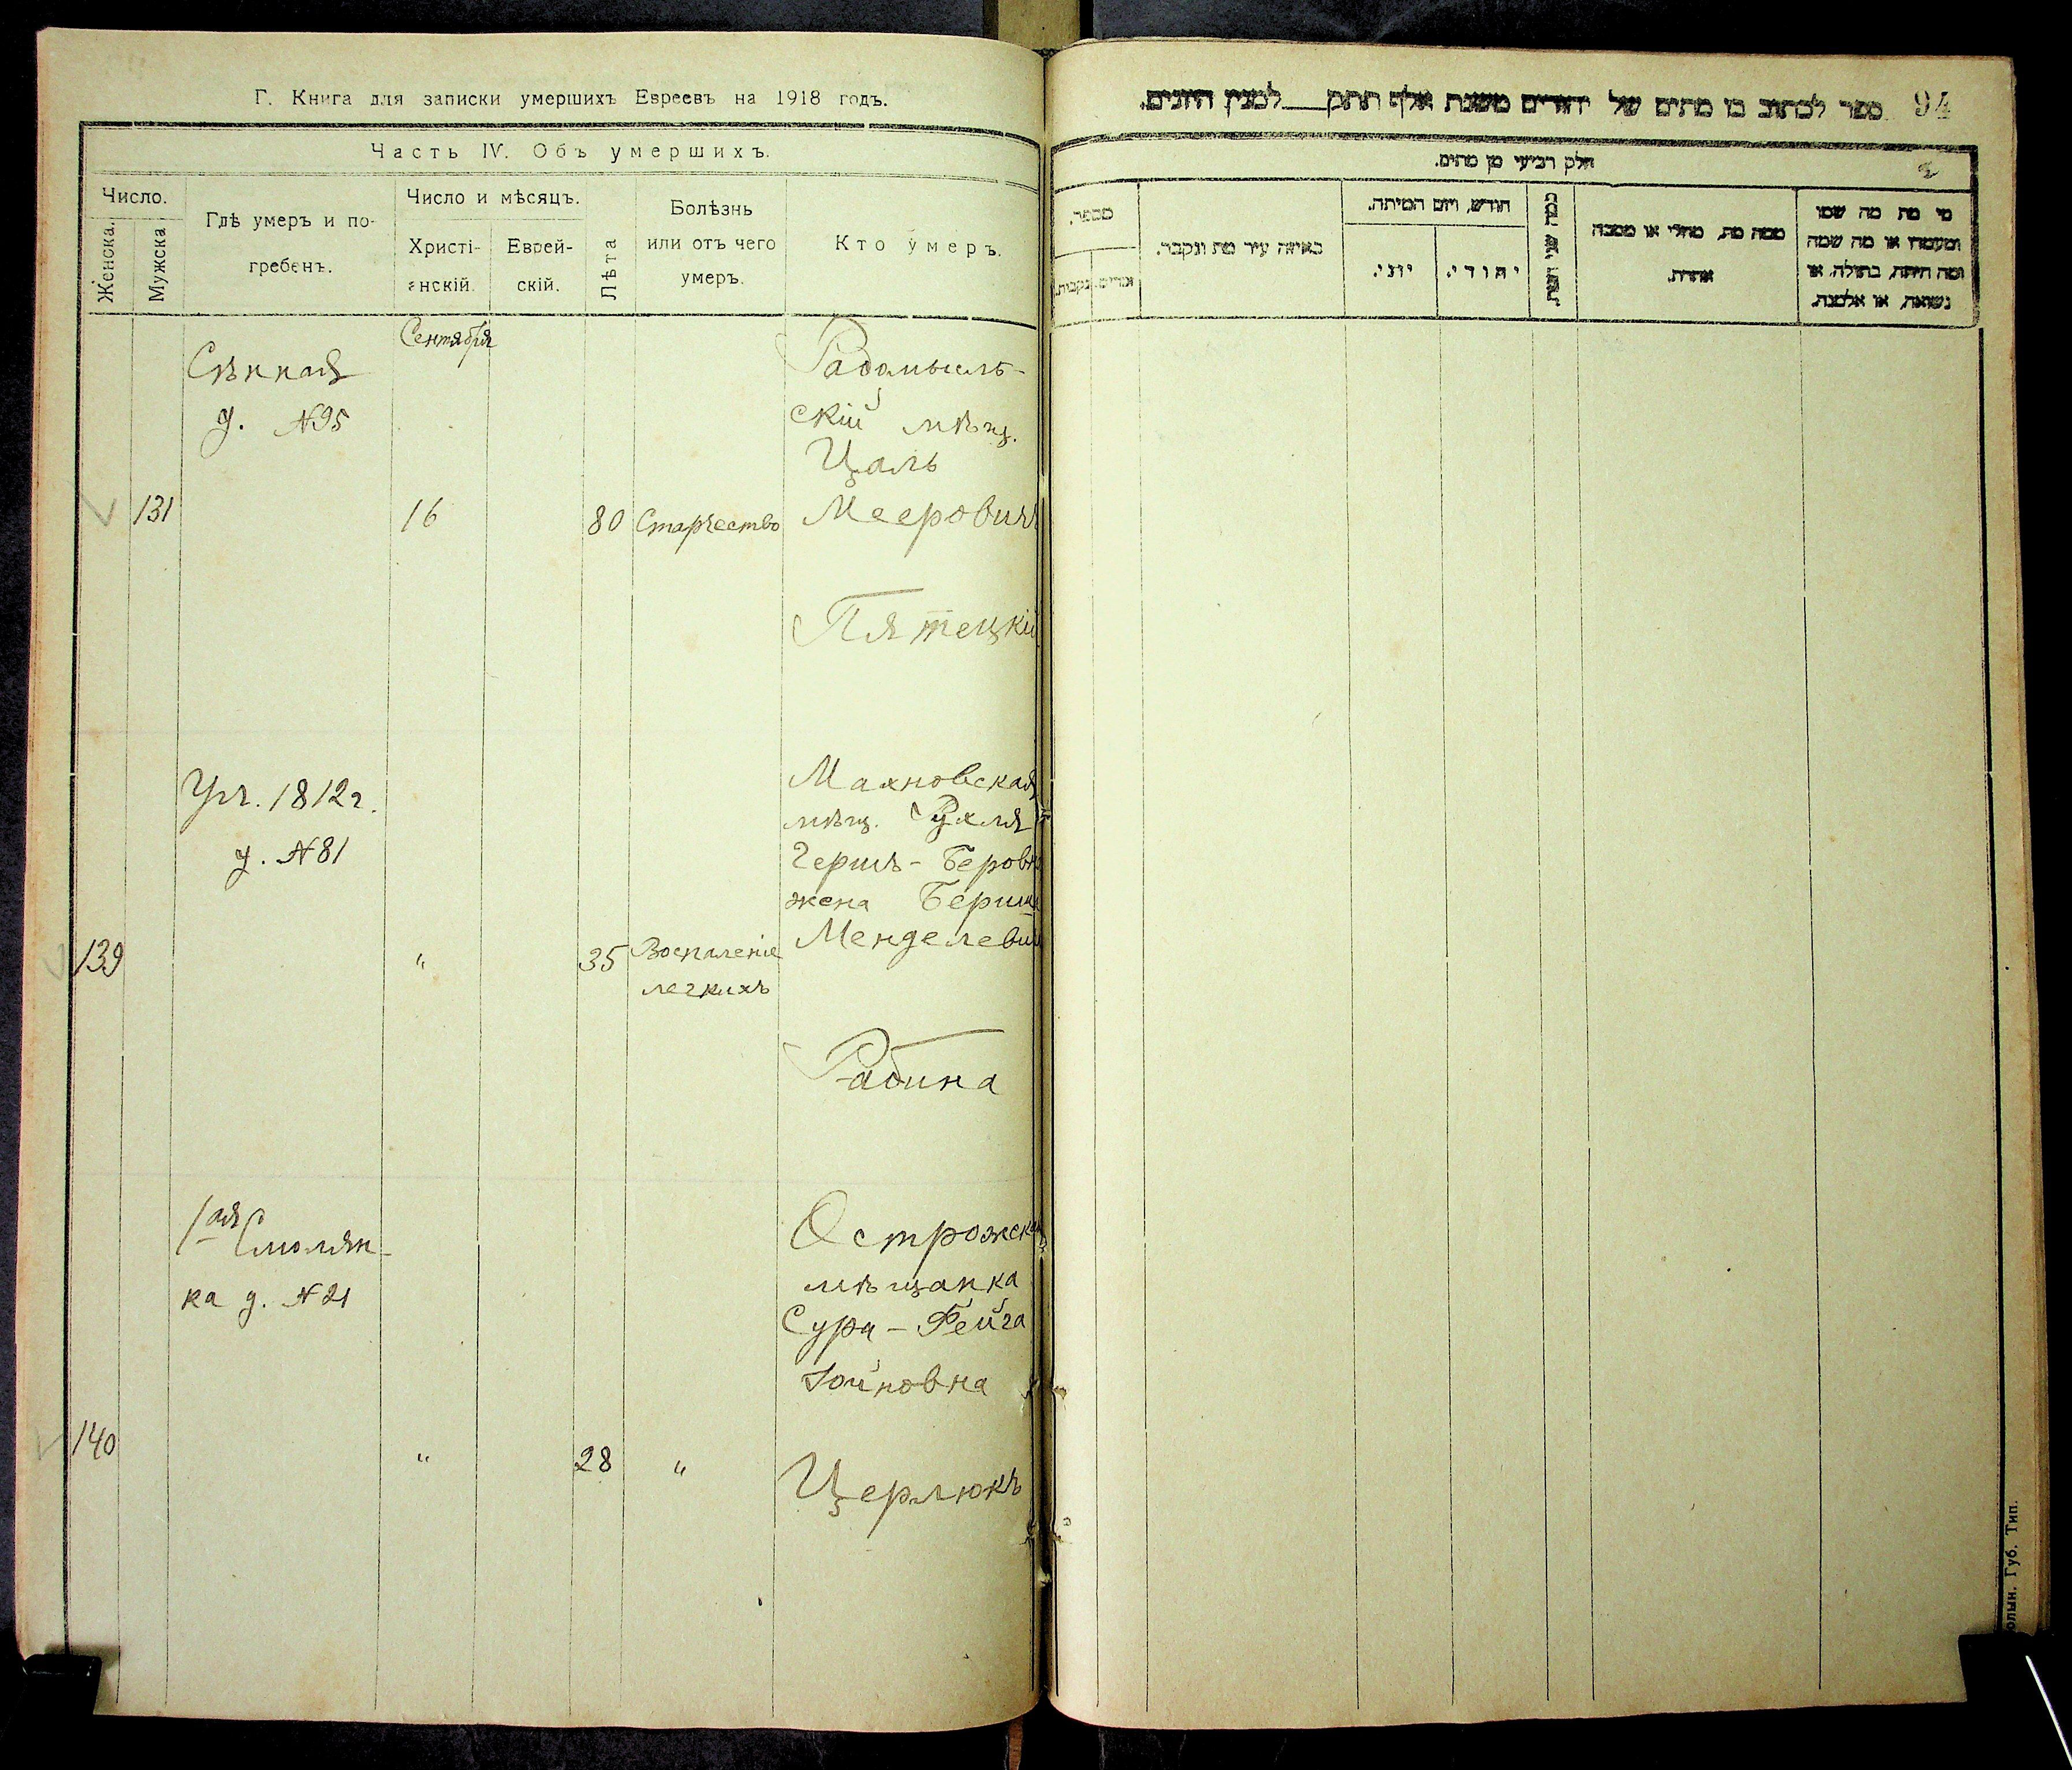 Г. Книга для записки умершихъ Евреевъ на 1918 годъ.
Часть IV. Объ умершихъ.
Число.
Женска.
Мужска
Гдѣ умеръ и по-
гребенъ.
Число и мѣсяцъ.
Христі-
анскій.
Еврей-
скій.
Лѣта
Болѣзнь
или отъ чего
умеръ.
Кто умеръ.
Сентября
Сѣнная
д. №95
131
16
80
Старчество
Радомысль-
скій мѣщ.
Цаль
Мееровичъ
Пятецкій
Уч. 1812 г.
д. №81
139
"
35
Воспаленіе
легкихъ
Махновская
мѣщ. Рухля
Гершъ-Беровна
жена Берша
Менделевича
Рабина
1ая Смолян-
ка д. №21
140
"
28
"
Острожская
мѣщанка
Сура-Фейга
Іойновна
Церлюкъ
94
ספר לכתוב בו מתים של יהודים משנת אלף תתק למנין היונים.
חלק רביעי מן מתים.
2
מי מת מה שמו
ומעמדו או מה שמה
ומה היתה, בתולה, או
נשואה, או אלמנה.
ממה מת, מחלי או מסבה
אחרת.
כמה שני חייו.
חודש, ויום המיתה.
יהודי.
יוני.
באיזה עיר מת ונקבר.
מספר.
זכרים.
נקבות.
олын. Губ. Тип.